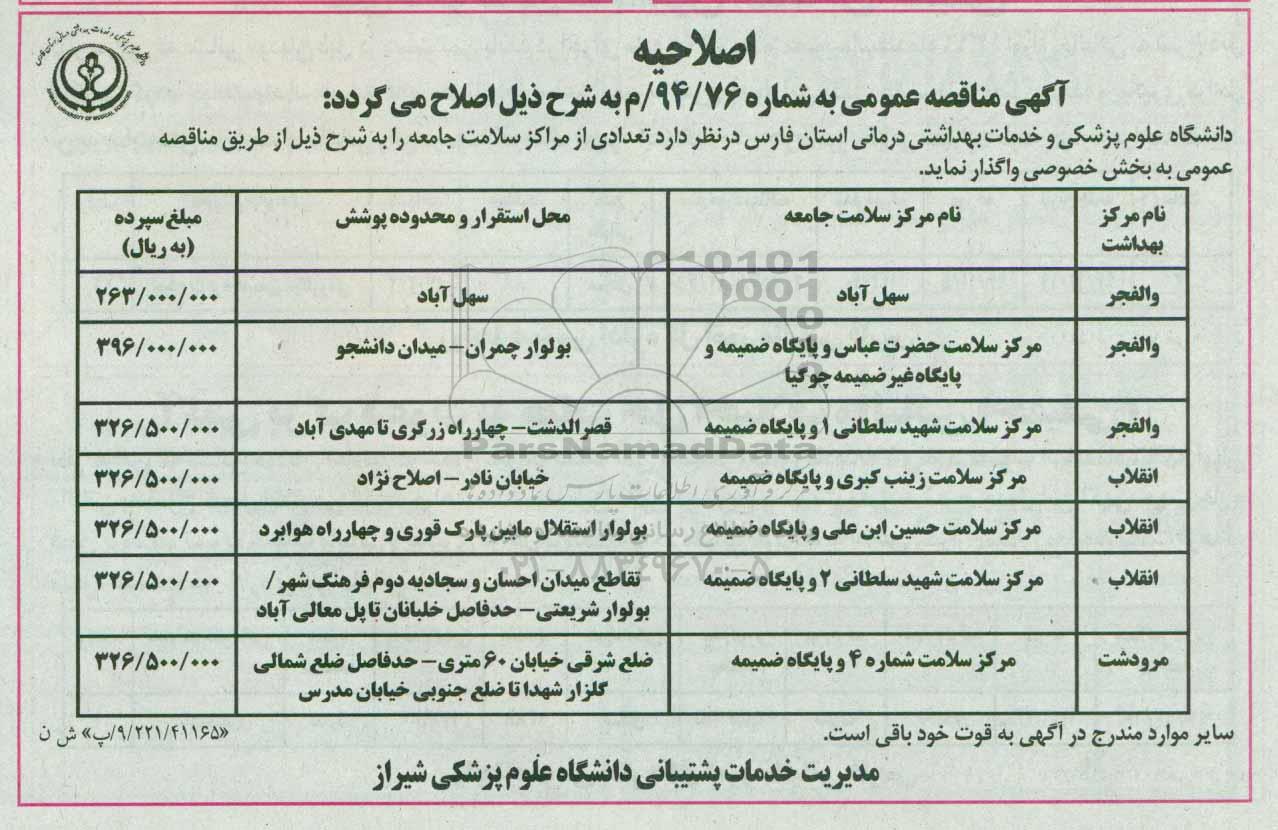 اصلاحیه
آگهی مناقصه عمومی به شماره ۹۴/۷۶/م به شرح ذیل اصلاح می گردد:
دانشگاه علوم پزشکی و خدمات بهداشتی درمانی استان فارس درنظر دارد تعدادی از مراکز سلامت جامعه را به شرح ذیل از طریق مناقصه
عمومی به بخش خصوصی واگذار نماید.
نام مرکز بهداشت | نام مرکز سلامت جامعه | محل استقرار و محدوده پوشش | مبلغ سپرده (به ریال)
والفجر | سهل آباد | سهل آباد | ۲۶۳/۰۰۰/۰۰۰
والفجر | مرکز سلامت حضرت عباس و پایگاه ضمیمه و پایگاه غیر ضمیمه چوگیا | بولوار چمران – میدان دانشجو | ۳۹۶/۰۰۰/۰۰۰
والفجر | مرکز سلامت شهید سلطانی ۱ و پایگاه ضمیمه | قصرالدشت – چهارراه زرگری تا مهدی آباد | ۳۲۶/۵۰۰/۰۰۰
انقلاب | مرکز سلامت زینب کبری و پایگاه ضمیمه | خیابان نادر – اصلاح نژاد | ۳۲۶/۵۰۰/۰۰۰
انقلاب | مرکز سلامت حسین ابن علی و پایگاه ضمیمه | بولوار استقلال مابین پارک قوری و چهارراه هوابرد | ۳۲۶/۵۰۰/۰۰۰
انقلاب | مرکز سلامت شهید سلطانی ۲ و پایگاه ضمیمه | تقاطع میدان احسان و سجادیه دوم فرهنگ شهر / بولوار شریعتی – حدفاصل خلبانان تا پل معالی آباد | ۳۲۶/۵۰۰/۰۰۰
مرودشت | مرکز سلامت شماره ۴ و پایگاه ضمیمه | ضلع شرقی خیابان ۶۰ متری – حدفاصل ضلع شمالی گلزار شهدا تا ضلع جنوبی خیابان مدرس | ۳۲۶/۵۰۰/۰۰۰
سایر موارد مندرج در آگهی به قوت خود باقی است.
«۹/۲۲۱/۴۱۱۶۵/پ» ش ن
مدیریت خدمات پشتیبانی دانشگاه علوم پزشکی شیراز
ParsNamadData
۰۲۱-۸۸۳۴۹۶۷۰-۵